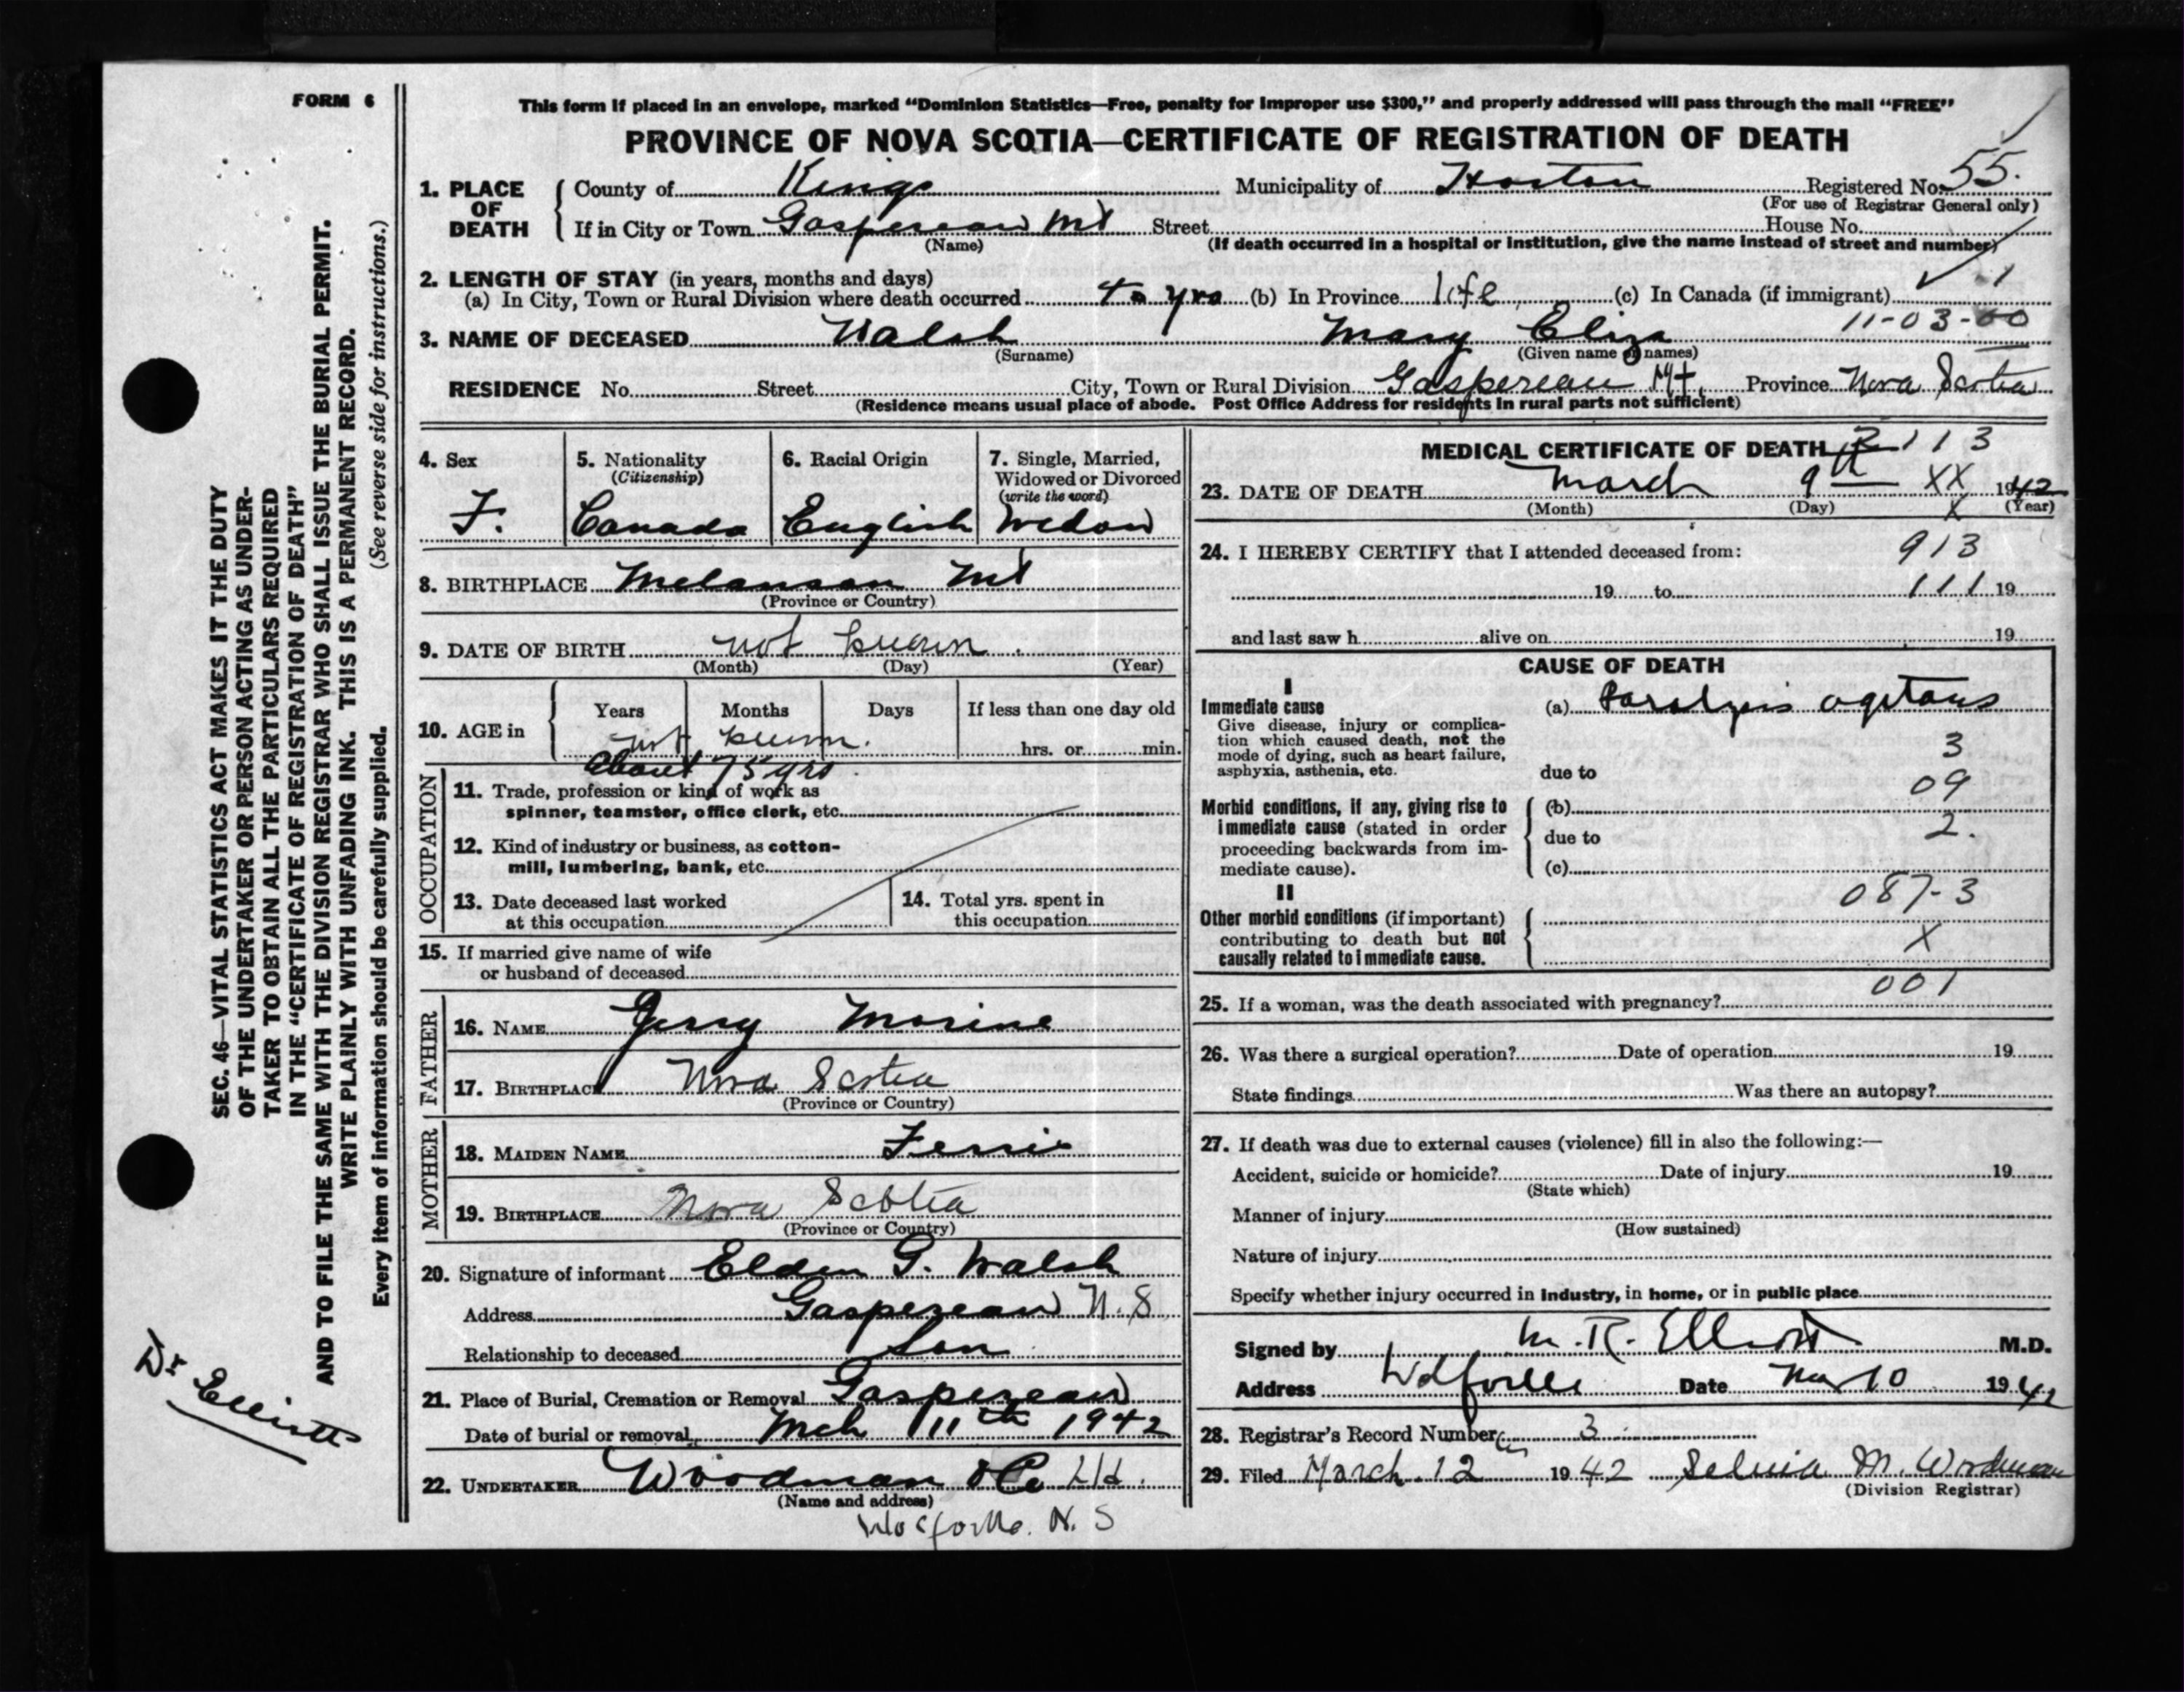 FORM 6
This form if placed in an envelope, marked "Dominion Statistics—Free, penalty for improper use $300," and properly addressed will pass through the mail "FREE"
PROVINCE OF NOVA SCOTIA—CERTIFICATE OF REGISTRATION OF DEATH
1. PLACE OF DEATH
County of Kings Municipality of Horton Registered No. 55.
(For use of Registrar General only)
If in City or Town Gaspereau Mt Street House No.
(Name) (If death occurred in a hospital or institution, give the name instead of street and number)
2. LENGTH OF STAY (in years, months and days)
(a) In City, Town or Rural Division where death occurred 40 yrs (b) In Province life (c) In Canada (if immigrant) 1
11-03-00
3. NAME OF DECEASED Walsh Mary Eliza
(Surname) (Given name or names)
RESIDENCE No. Street City, Town or Rural Division Gaspereau Mt. Province Nova Scotia
(Residence means usual place of abode. Post Office Address for residents in rural parts not sufficient)
4. Sex F.
5. Nationality (Citizenship) Canada
6. Racial Origin English
7. Single, Married, Widowed or Divorced (write the word) Wedow
8. BIRTHPLACE Melanson Mt
(Province or Country)
9. DATE OF BIRTH not known.
(Month) (Day) (Year)
10. AGE in Years Months Days If less than one day old
not known. hrs. or min.
About 75 yrs.
OCCUPATION
11. Trade, profession or kind of work as
spinner, teamster, office clerk, etc.
12. Kind of industry or business, as cotton-
mill, lumbering, bank, etc.
13. Date deceased last worked
at this occupation
14. Total yrs. spent in
this occupation
15. If married give name of wife
or husband of deceased
FATHER
16. NAME Gerry Morine
17. BIRTHPLACE Nova Scotia
(Province or Country)
MOTHER
18. MAIDEN NAME
19. BIRTHPLACE Nova Scotia
(Province or Country)
20. Signature of informant Elden G. Walsh
Address Gaspereau N.S
Relationship to deceased Son
21. Place of Burial, Cremation or Removal Gaspereau
Date of burial or removal Mch 11th 1942
22. UNDERTAKER Woodman & Co Ltd.
(Name and address)
Wolfville. N. S
MEDICAL CERTIFICATE OF DEATH
113
23. DATE OF DEATH March 9th XX 1942
(Month) (Day) X (Year)
24. I HEREBY CERTIFY that I attended deceased from:
913
19 to 111 19
and last saw h alive on 19
CAUSE OF DEATH
I
Immediate cause (a) Paralysis agitans
Give disease, injury or complica-
tion which caused death, not the
mode of dying, such as heart failure,
asphyxia, asthenia, etc.
3
due to
09
Morbid conditions, if any, giving rise to (b)
immediate cause (stated in order due to 2.
proceeding backwards from im-
mediate cause). (c)
II
087-3
Other morbid conditions (if important)
contributing to death but not X
causally related to immediate cause.
001
25. If a woman, was the death associated with pregnancy?
26. Was there a surgical operation? Date of operation 19
State findings Was there an autopsy?
27. If death was due to external causes (violence) fill in also the following:—
Accident, suicide or homicide? Date of injury 19
(State which)
Manner of injury
(How sustained)
Nature of injury
Specify whether injury occurred in industry, in home, or in public place
Signed by M. R. Elliott M.D.
Address Wolfville Date Mar 10 1942
28. Registrar's Record Number 3
29. Filed March 12 1942 Selvia M. Woodman
(Division Registrar)
SEC. 46—VITAL STATISTICS ACT MAKES IT THE DUTY
OF THE UNDERTAKER OR PERSON ACTING AS UNDER-
TAKER TO OBTAIN ALL THE PARTICULARS REQUIRED
IN THE "CERTIFICATE OF REGISTRATION OF DEATH"
AND TO FILE THE SAME WITH THE DIVISION REGISTRAR WHO SHALL ISSUE THE BURIAL PERMIT.
WRITE PLAINLY WITH UNFADING INK. THIS IS A PERMANENT RECORD.
Every item of information should be carefully supplied. (See reverse side for instructions.)
Dr Elliott